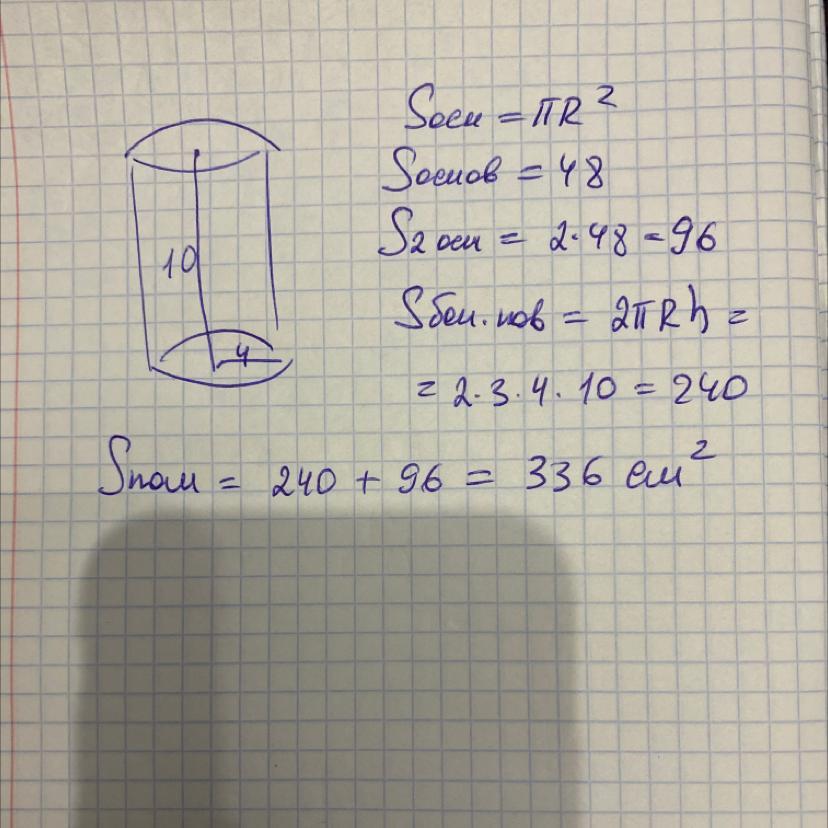 Sосн = πR²
Sоснов = 48
S2 осн = 2·48 = 96
10
Sбок.пов = 2πRh =
4
= 2·3·4·10 = 240
Sполн = 240 + 96 = 336 см²